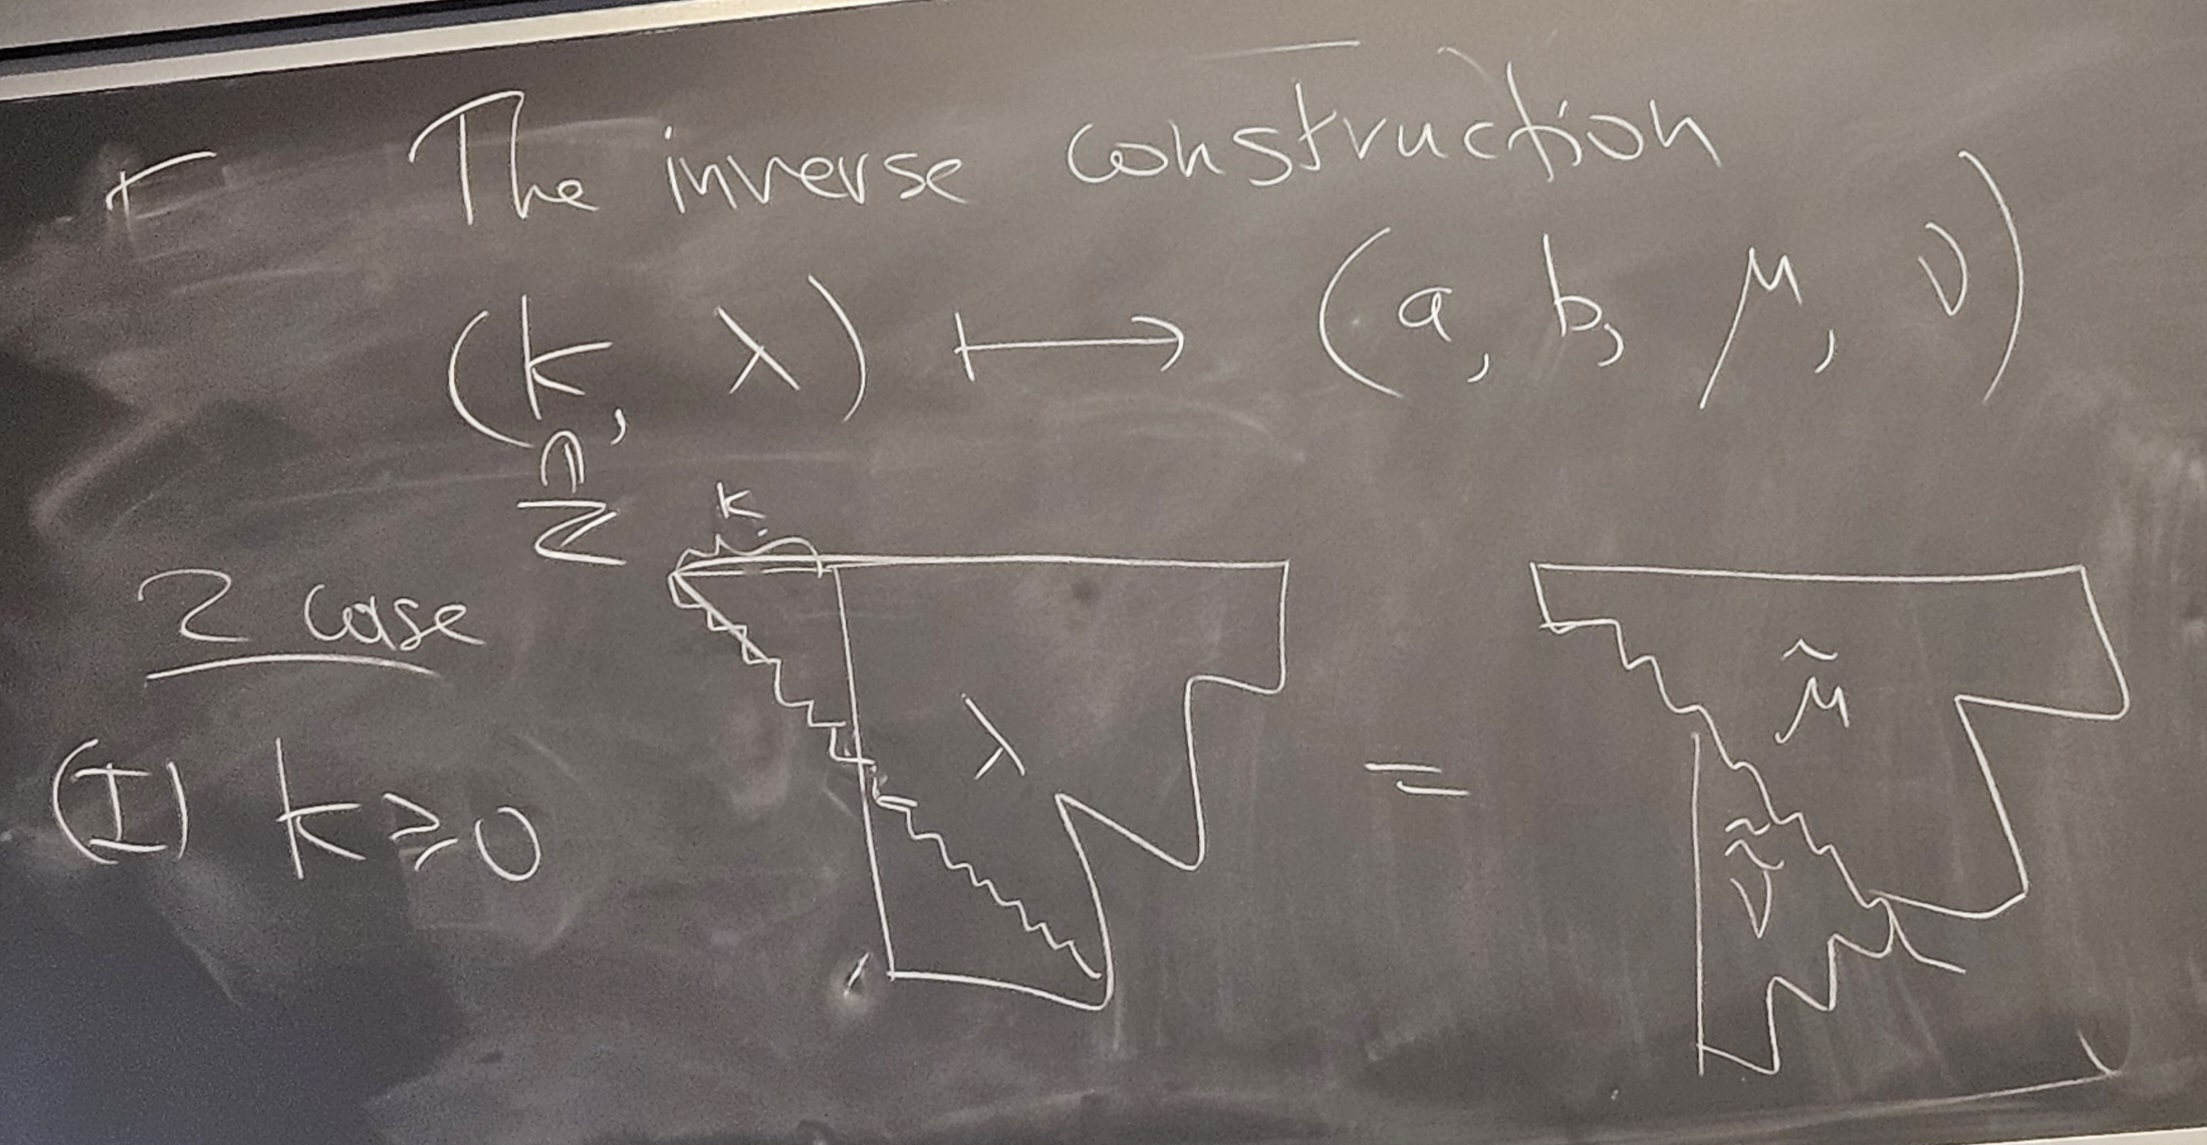 The inverse construction
(k, λ) ⟼ (a, b, μ, ν)
∩
Z
k
2 case
(I) k ≥ 0
λ
=
μ̃
ν̃